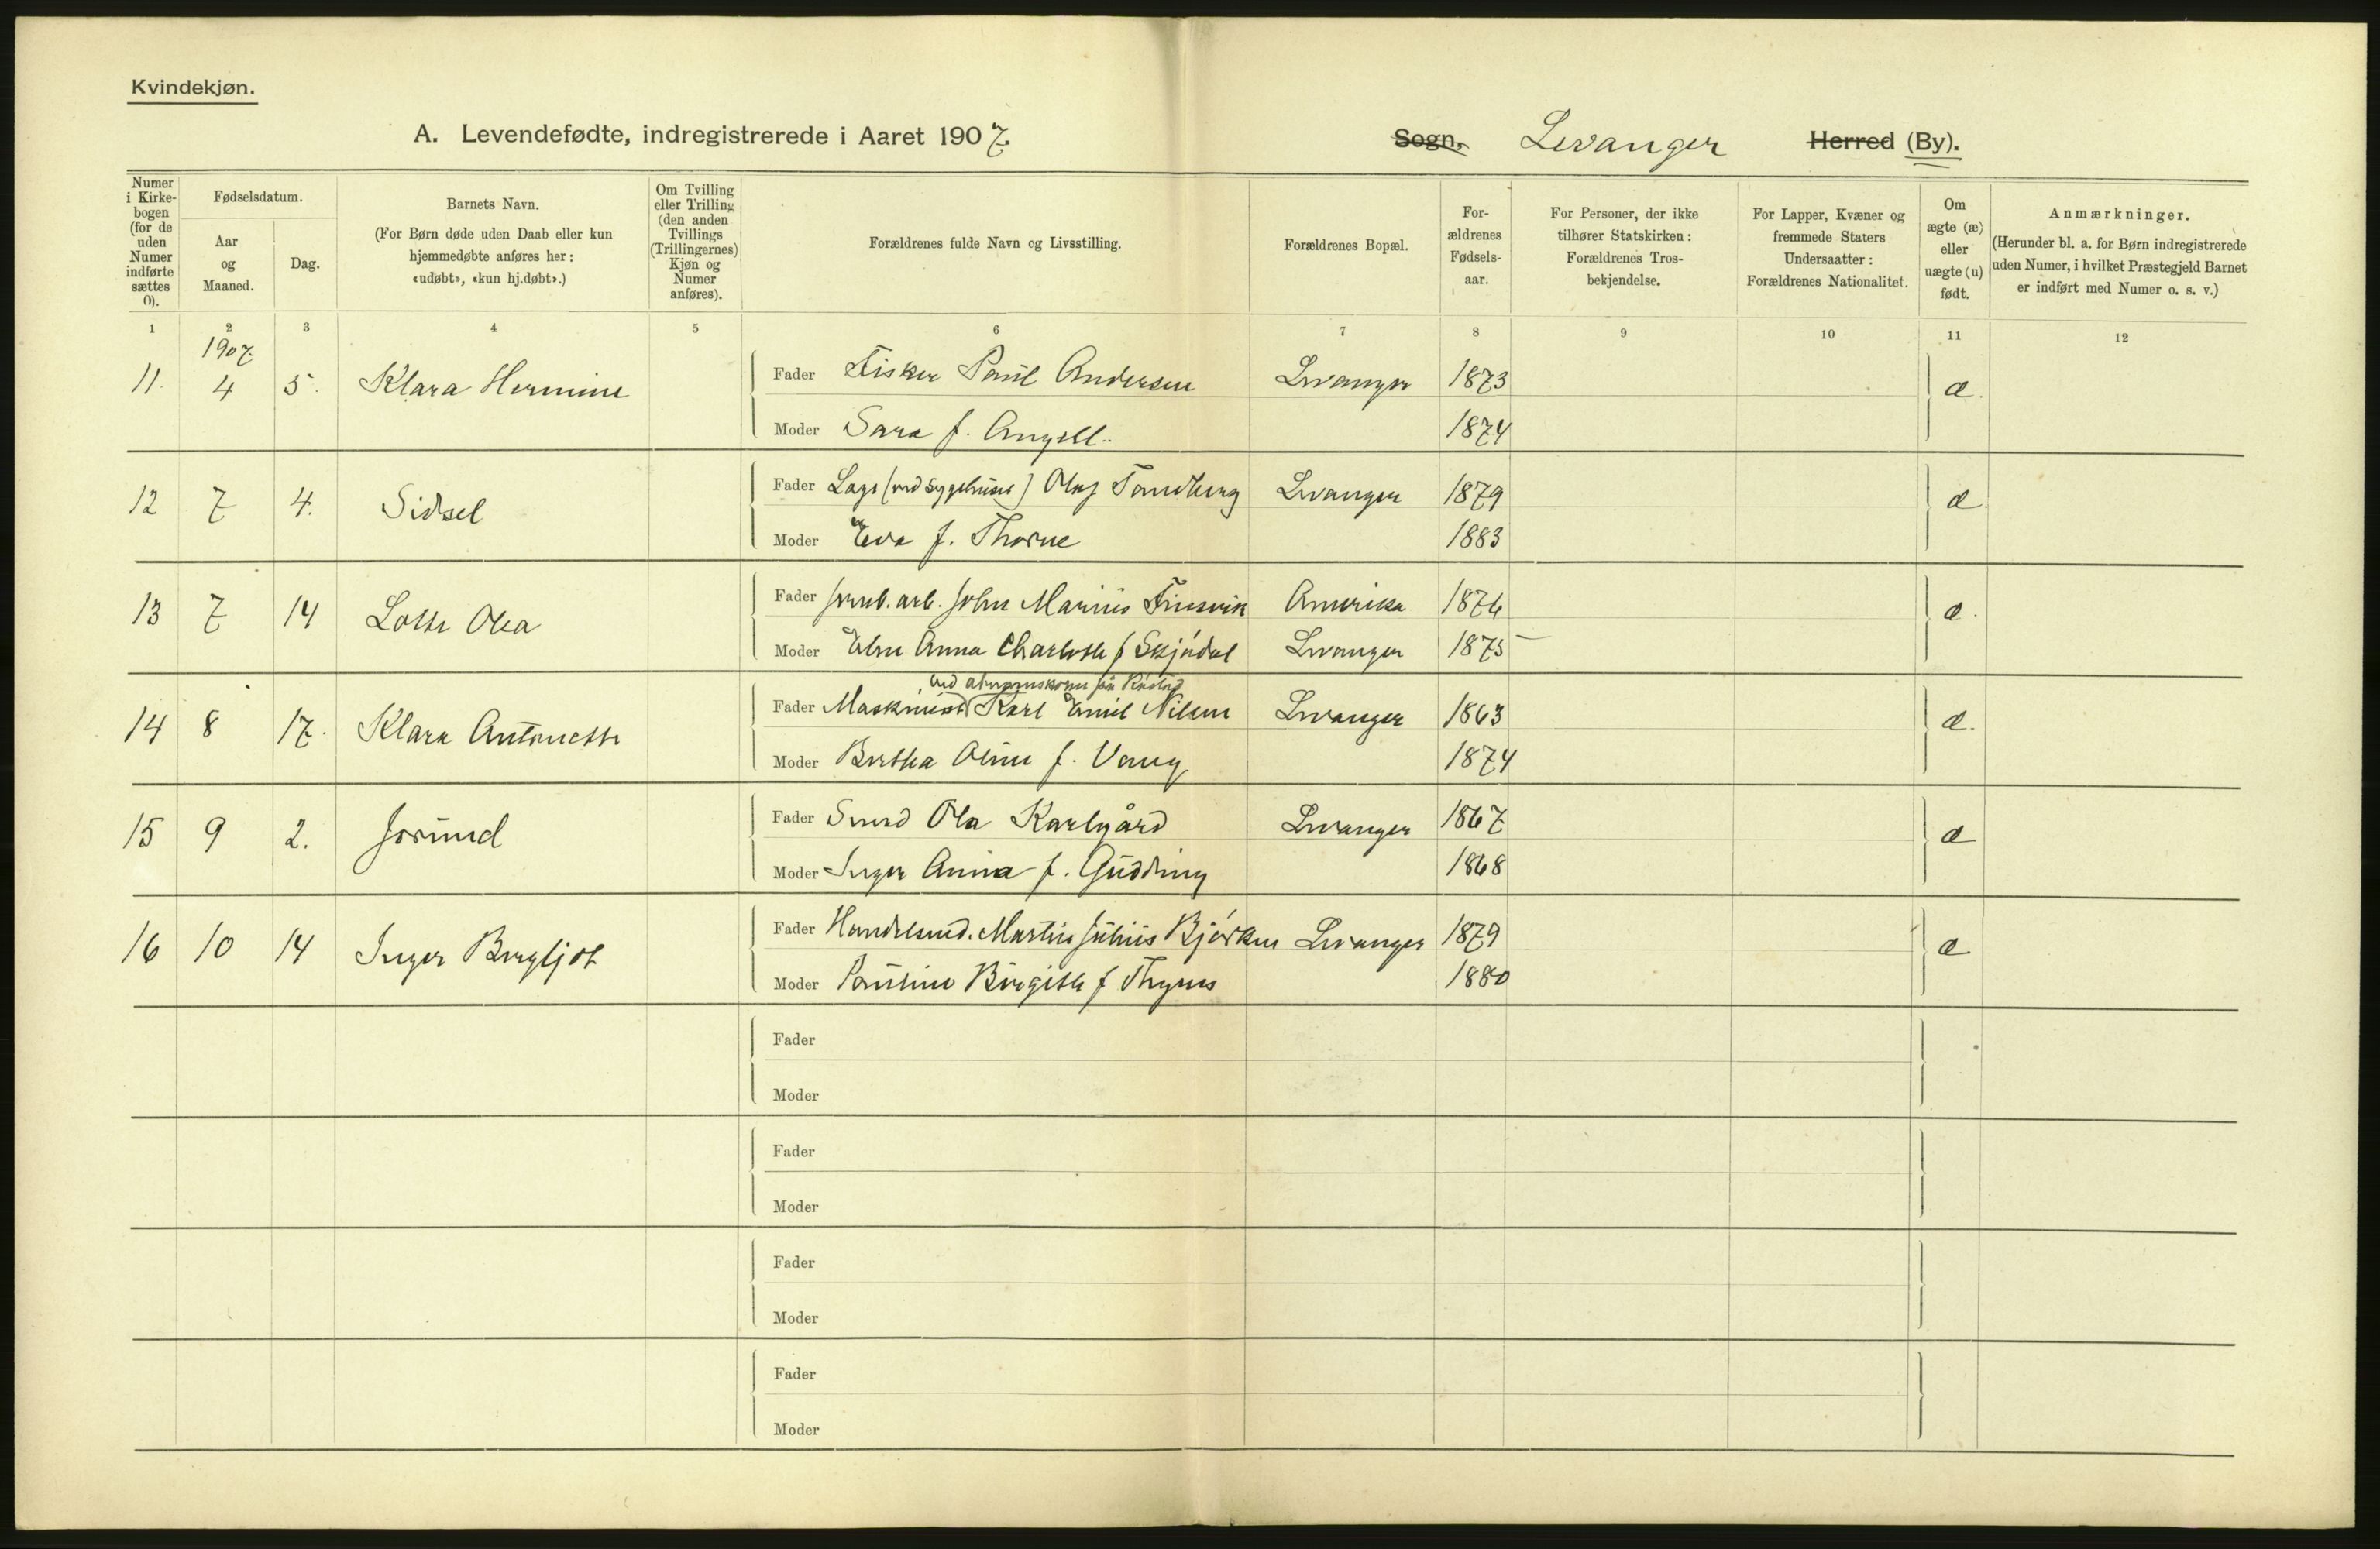 Kvindekjøn.
A. Levendefødte, indregistrerede i Aaret 1907. Sogn, Levanger Herred (By).
Numer i Kirke-bogen (for de uden Numer indførte sættes 0).
Fødselsdatum.
Aar og Maaned.
Dag.
Barnets Navn.
(For Børn døde uden Daab eller kun
hjemmedøbte anføres her:
«udøbt», «kun hj.døbt».)
Om Tvilling
eller Trilling
(den anden
Tvillings
(Trillingernes)
Kjøn og
Numer
anføres).
Forældrenes fulde Navn og Livsstilling.
Forældrenes Bopæl.
For-
ældrenes
Fødsels-
aar.
For Personer, der ikke
tilhører Statskirken:
Forældrenes Tros-
bekjendelse.
For Lapper, Kvæner og
fremmede Staters
Undersaatter:
Forældrenes Nationalitet.
Om
ægte (æ)
eller
uægte (u)
født.
Anmærkninger.
(Herunder bl. a. for Børn indregistrerede
uden Numer, i hvilket Præstegjeld Barnet
er indført med Numer o. s. v.)
1 2 3 4 5 6 7 8 9 10 11 12
1907.
11. 4 5. Klara Hermine Fader Fisker Paul Andersen Levanger 1873 æ.
Moder Sara f. Angell. 1874
12 7 4. Sidsel Fader Læge (ved sygehuset) Olaf Sandberg Levanger 1879 æ.
Moder Eva f. Thorne 1883
13 7 14 Lotte Olea Fader Jernb. arb. John Marius Finsvik Amerika 1876 æ.
Moder Anna Charlotte f Levanger 1875
14 8 17. Klara Antonette Fader Maskinist Karl Emil Nilsen Levanger 1863 æ.
Moder Bertha Oline f. Vang 1874
15 9 2. Jorund Fader Smed Ola Karlgård Levanger 1867 æ
Moder Inger Anna f. Gudding 1868
16 10 14 Inger Bergljot Fader Handelsmd. Martin Julius Bjørken Levanger 1879 æ
Moder Pauline Birgitte f 1880
Fader
Moder
Fader
Moder
Fader
Moder
Fader
Moder